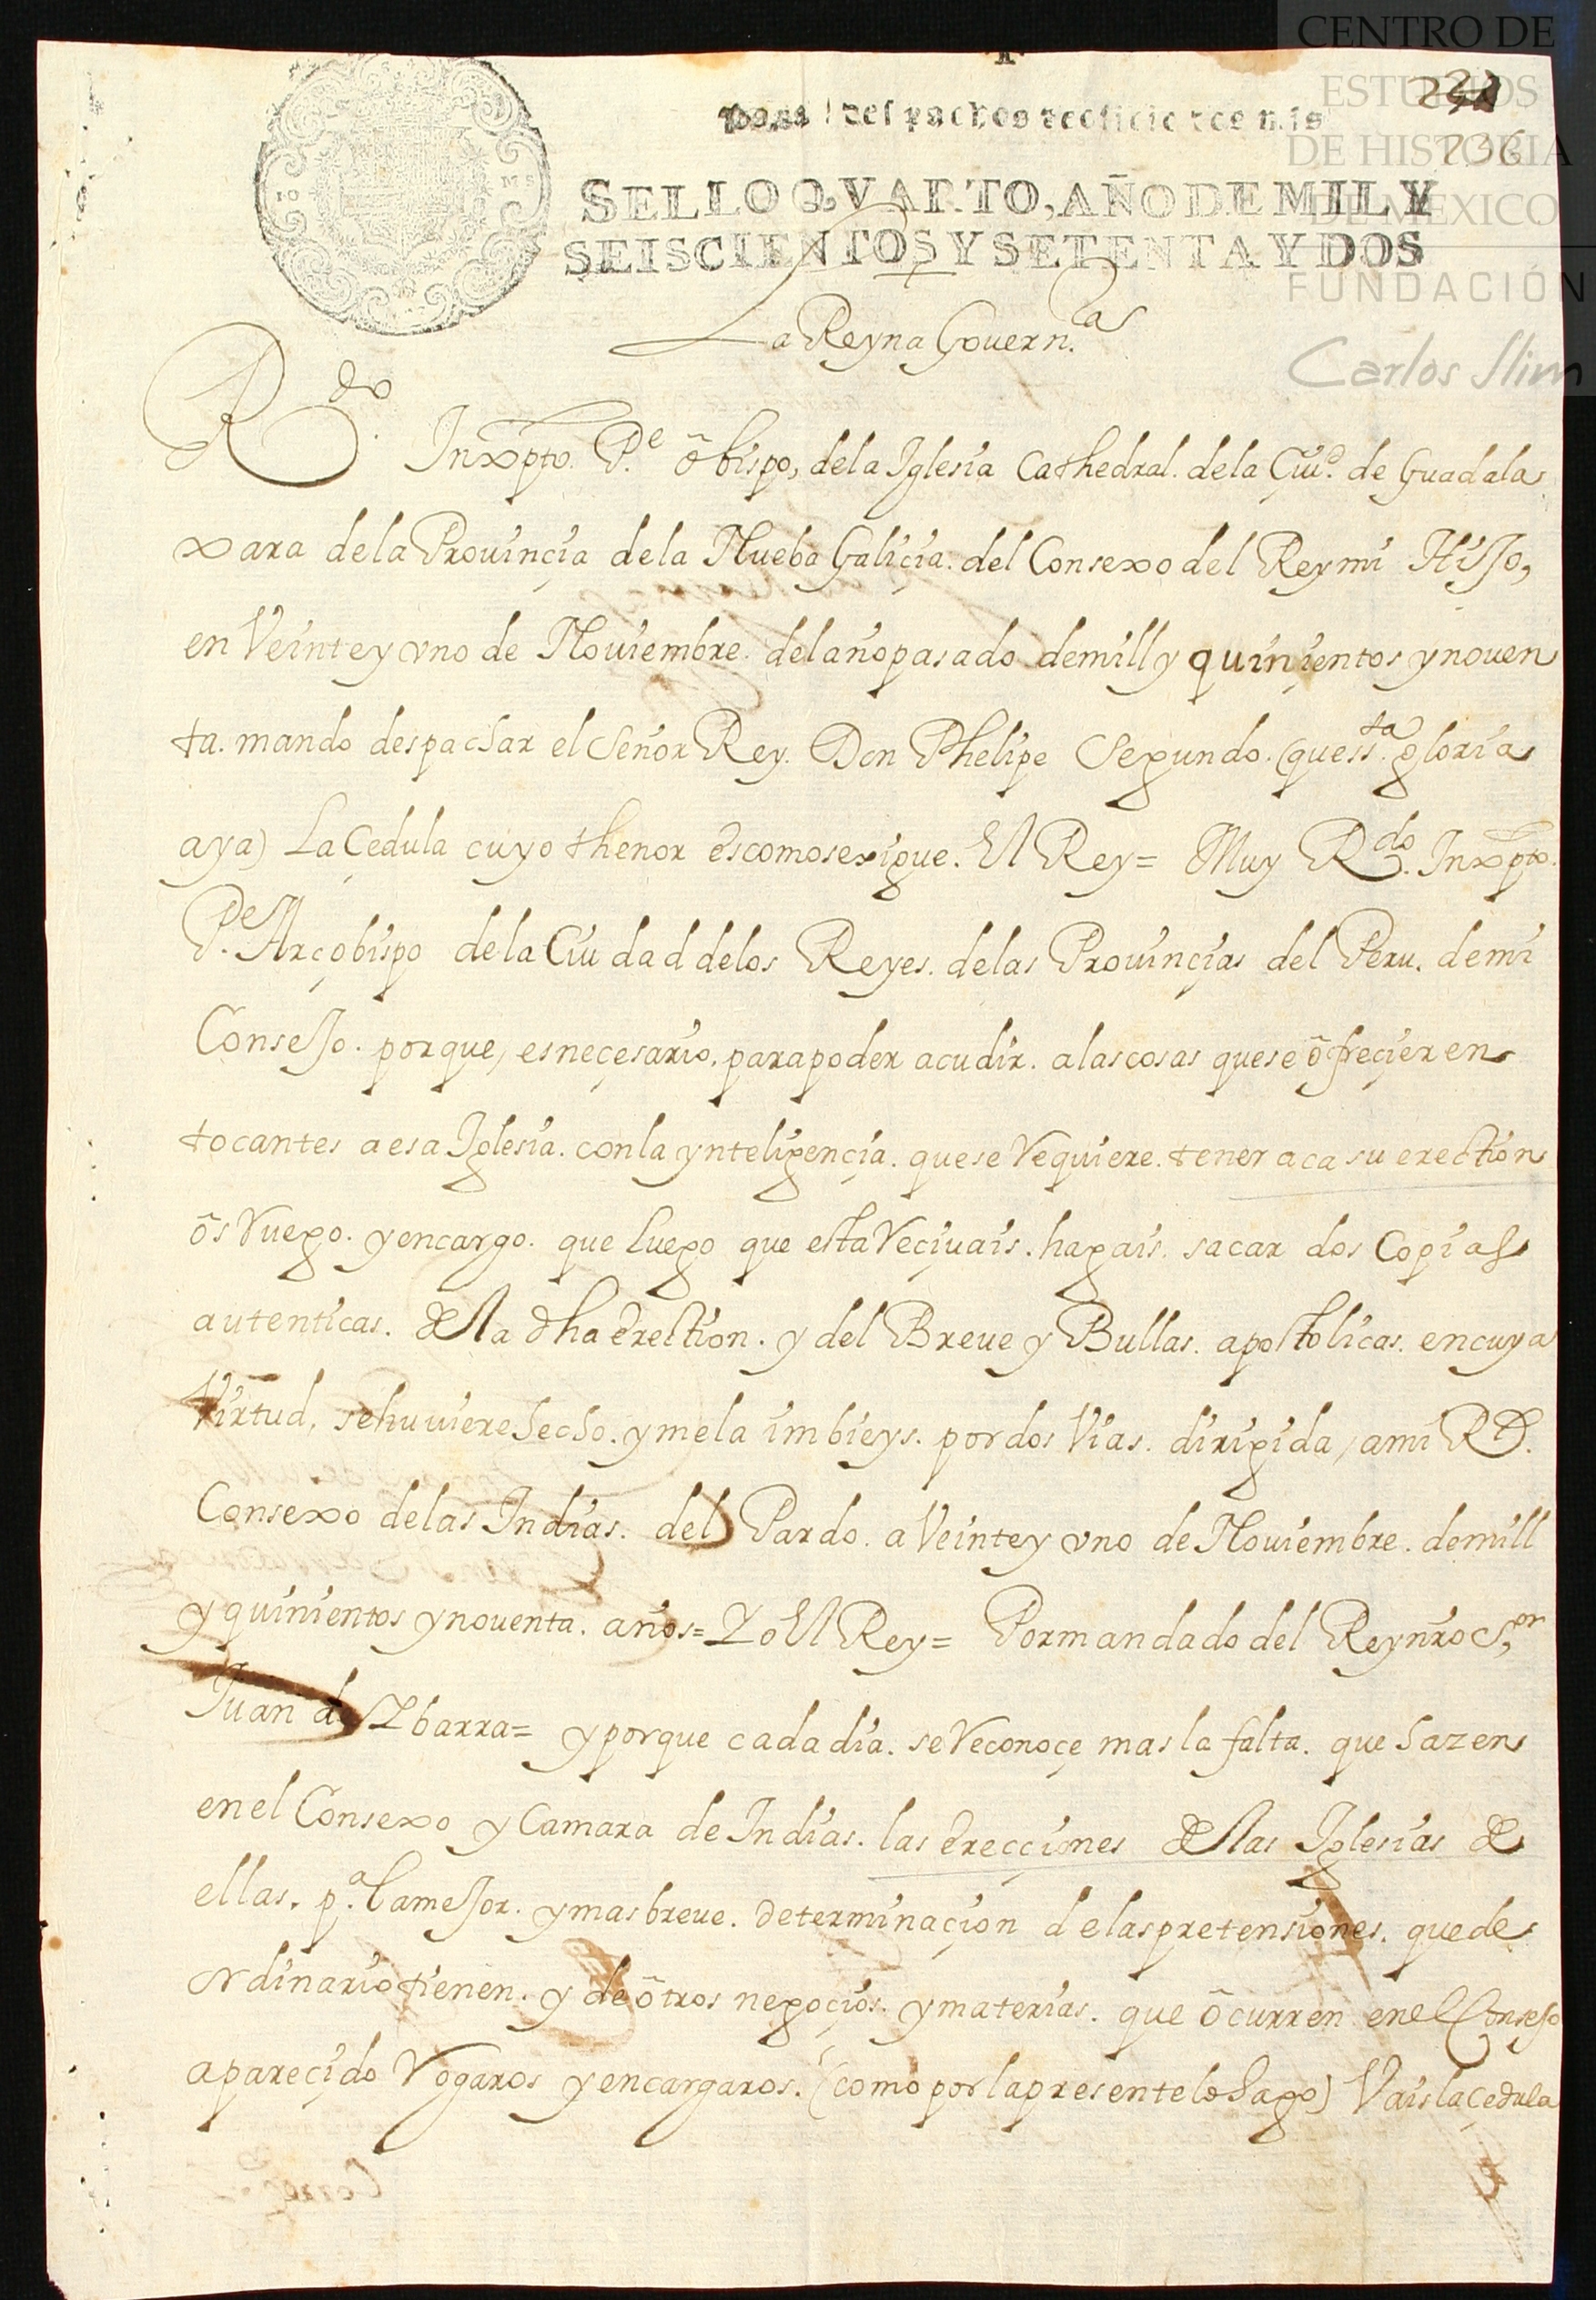 CENTRO DE
ESTUDIOS
DE HISTORIA
DE MEXICO
FUNDACIÓN
Carlos Slim
236
SELLO QVARTO, AÑO DE MIL Y
SEISCIENTOS Y SETENTA Y DOS
La Reyna Gouern.ª
R.do Inxpto. P.e obispo, dela Iglesia Cathedral. dela Çiu.d de Guadala
xara dela Prouinçia dela Nueba Galiçia. del Consexo del Rey mi Hijo,
en Veinte y vno de Nouiembre. del año pasado de mill y quinientos y nouen
ta. mando despachar el Señor Rey. Don Phelipe Segundo. (que s.ta gloria
aya) La Cedula cuyo thenor es como se sigue. El Rey= Muy R.do Inxpto.
P.e Arçobispo dela Ciudad delos Reyes. delas Prouinçias del Peru. de mi
Consejo. porque, es neçesario. para poder acudir. alas cosas que se ofreçieren
tocantes a esa Iglesia. con la ynteligençia. que se Requiere. tener aca su erection
os Ruego. y encargo. que luego que esta Reçiuais. hagais. sacar dos Copias
autenticas. de la dha erection. y del Breue y Bullas. apostolicas. en cuya
Virtud, se huuiere hecho. y me la imbieys. por dos Vias. dirigida, a mi R.l
Consexo delas Indias. del Pardo. a Veinte y vno de Nouiembre. de mill
y quinientos y nouenta. años= Yo El Rey= Por mandado del Rey nro S.or
Juan de Ybarra= y porque cada dia. se Reconoçe mas la falta. que hazen
en el Consexo y Camara de Indias. las erecçiones de las Iglesias de
ellas. p.a la mejor. y mas breue. determinaçion de las pretensiones. que de
ordinario tienen. y de otros negoçios. y materias. que ocurren en el Consejo
a pareçido Rogaros y encargaros. (como por la presente lo hago) Vais la Çedula